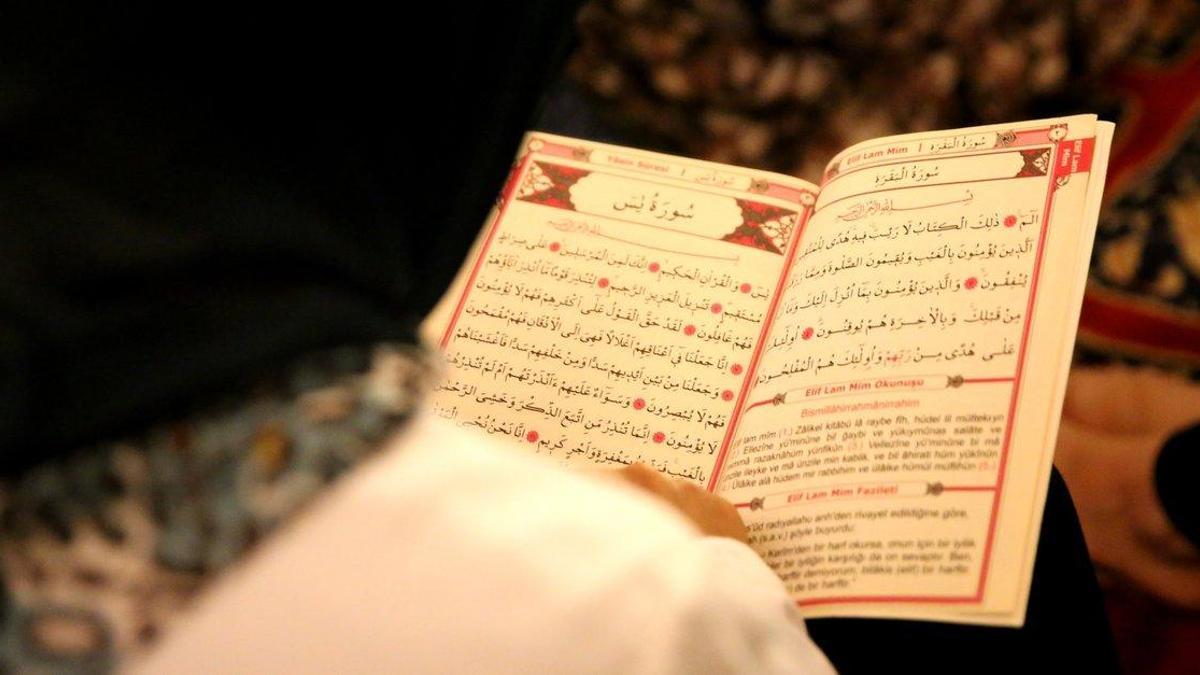 Elif Lam Mim | سُورَةُ الْبَقَرَةِ
٢
Elif Lam Mim
سُورَةُ الْبَقَرَةِ
بِسْمِ اللّٰهِ الرَّحْمٰنِ الرَّحِيمِ
الٓمٓ ذٰلِكَ الْكِتَابُ لَا رَيْبَ فِيهِ هُدًى لِلْمُتَّقِينَ
اَلَّذِينَ يُؤْمِنُونَ بِالْغَيْبِ وَيُقِيمُونَ الصَّلٰوةَ وَمِمَّا
يُنْفِقُونَ وَالَّذِينَ يُؤْمِنُونَ بِمَا اُنْزِلَ اِلَيْكَ وَمَا
مِنْ قَبْلِكَ وَبِالْاٰخِرَةِ هُمْ يُوقِنُونَ اُولٰٓئِكَ
عَلٰى هُدًى مِنْ رَبِّهِمْ وَاُولٰٓئِكَ هُمُ الْمُفْلِحُونَ
Elif Lam Mim Okunuşu
Bismillâhirrahmânirrahîm
Elif lam mîm (1.) Zâlikel kitâbü lâ raybe fîh, hüdel lil müttekıyn
(2.) Ellezîne yü'minûne bil ğaybi ve yükıymûnas salâte ve
mimmâ razaknâhüm yünfikûn (3.) Vellezîne yü'minûne bi mâ
ünzile ileyke ve mâ ünzile min kablik, ve bil âhirati hüm yûkinûn
(4.) Ülâike alâ hüdem mir rabbihim ve ülâike hümül müflihûn (5.)
Elif Lam Mim Fazileti
radiyallahu anh'den rivayet edildiğine göre,
(s.a.v.) şöyle buyurdu:
Kerîm'den bir harf okursa, onun için bir iyilik
her bir iyiliğin karşılığı da on sevaptır. Ben,
harftir demiyorum, bilâkis (elif) bir harftir.
de bir harftir."
Yâsin Sûresi | سُورَةُ يٰسٓ
سُورَةُ يٰسٓ
بِسْمِ اللّٰهِ الرَّحْمٰنِ الرَّحِيمِ
يٰسٓ وَالْقُرْاٰنِ الْحَكِيمِ اِنَّكَ لَمِنَ الْمُرْسَلِينَ عَلٰى صِرَاطٍ
مُسْتَقِيمٍ تَنْزِيلَ الْعَزِيزِ الرَّحِيمِ لِتُنْذِرَ قَوْمًا مَٓا اُنْذِرَ اٰبَٓاؤُ۬هُمْ
فَهُمْ غَافِلُونَ لَقَدْ حَقَّ الْقَوْلُ عَلٰٓى اَكْثَرِهِمْ فَهُمْ لَا يُؤْمِنُونَ
اِنَّا جَعَلْنَا فِٓي اَعْنَاقِهِمْ اَغْلَالًا فَهِيَ اِلَى الْاَذْقَانِ فَهُمْ مُقْمَحُونَ
وَجَعَلْنَا مِنْ بَيْنِ اَيْدِيهِمْ سَدًّا وَمِنْ خَلْفِهِمْ سَدًّا فَاَغْشَيْنَاهُمْ
فَهُمْ لَا يُبْصِرُونَ وَسَوَٓاءٌ عَلَيْهِمْ ءَاَنْذَرْتَهُمْ اَمْ لَمْ تُنْذِرْهُمْ
لَا يُؤْمِنُونَ اِنَّمَا تُنْذِرُ مَنِ اتَّبَعَ الذِّكْرَ وَخَشِيَ الرَّحْمٰنَ
بِالْغَيْبِ فَبَشِّرْهُ بِمَغْفِرَةٍ وَاَجْرٍ كَرِيمٍ اِنَّا نَحْنُ نُحْيِي